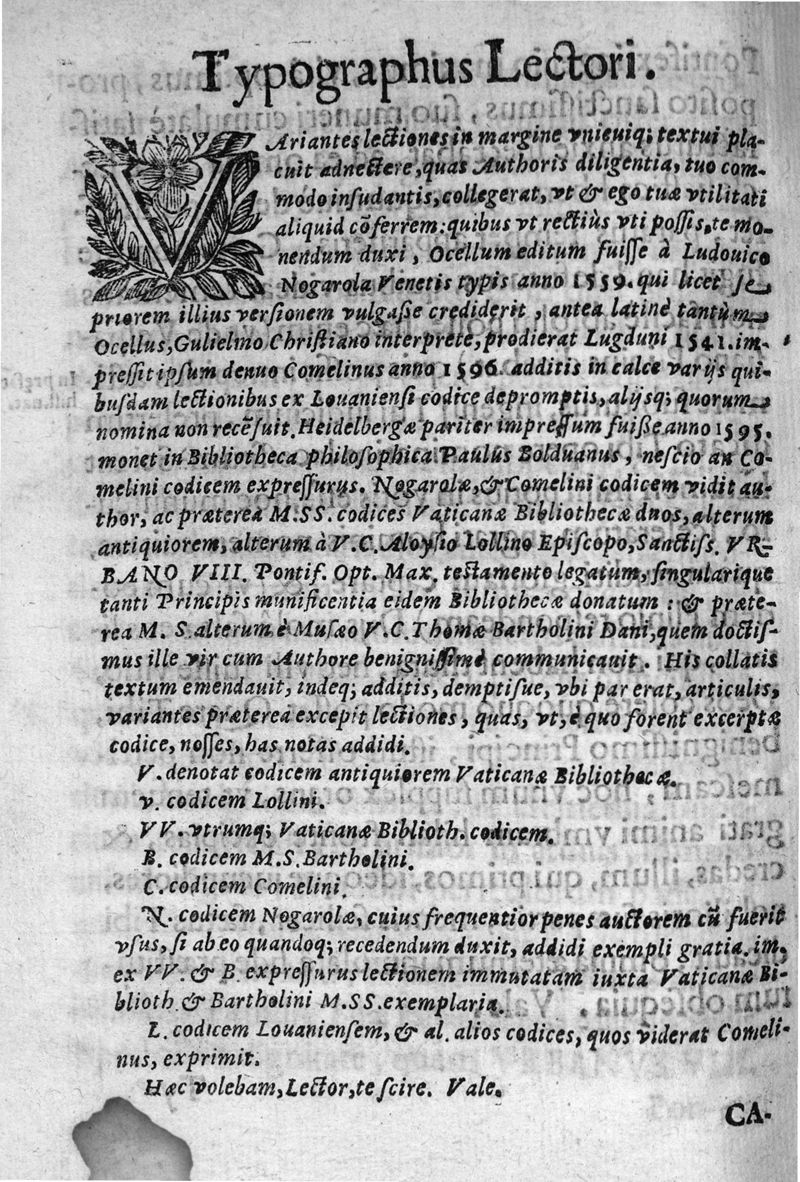 Typographus Lectori.
VAriantes lectiones in margine vnicuiq; textui pla-
cuit adnectere, quas Authoris diligentia, tuo com-
modo insudantis, collegerat, vt & ego tuæ vtilitati
aliquid cōferrem: quibus vt rectiùs vti possis, te mo-
nendum duxi, Ocellum editum fuisse à Ludouico
Nogarola Venetis typis anno 1559. qui licet se
priorem illius versionem vulgasse crediderit, antea latinè tantùm
Ocellus, Gulielmo Christiano interprete, prodierat Lugduni 1541. im-
pressit ipsum denuo Comelinus anno 1596. additis in calce varijs qui-
busdam lectionibus ex Louaniensi codice depromptis, alijsq; quorum
nomina non recẽsuit. Heidelbergæ pariter impressum fuisse anno 1595.
monet in Bibliotheca philosophica Paulus Bolduanus, nescio an Co-
melini codicem expressurus. Nogarolæ, & Comelini codicem vidit au-
thor, ac præterea M.SS. codices Vaticanæ Bibliothecæ duos, alterum
antiquiorem, alterum à V.C. Aloysio Lollino Episcopo, Sanctiss. VR-
BANO VIII. Pontif. Opt. Max. testamento legatum, singularique
tanti Principis munificentia eidem Bibliothecæ donatum: & præte-
rea M. S. alterum è Musæo V.C. Thomæ Bartholini Dani, quem doctis-
mus ille vir cum Authore benignissimè communicauit. His collatis
textum emendauit, indeq; additis, demptisue, vbi par erat, articulis,
variantes præterea excepit lectiones, quas, vt, è quo forent excerptæ
codice, nosses, has notas addidi.
V. denotat codicem antiquiorem Vaticanæ Bibliothecæ.
v. codicem Lollini.
VV. vtrumq; Vaticanæ Biblioth. codicem.
B. codicem M.S. Bartholini.
C. codicem Comelini.
N. codicem Nogarolæ, cuius frequentior penes auctorem cũ fuerit
vsus, si ab eo quandoq; recedendum duxit, addidi exempli gratia. im.
ex VV. & B. expressurus lectionem immutatam iuxta Vaticanæ Bi-
blioth. & Bartholini M.SS. exemplaria.
L. codicem Louaniensem, & al. alios codices, quos viderat Comeli-
nus, exprimit.
Hæc volebam, Lector, te scire. Vale.
CA-